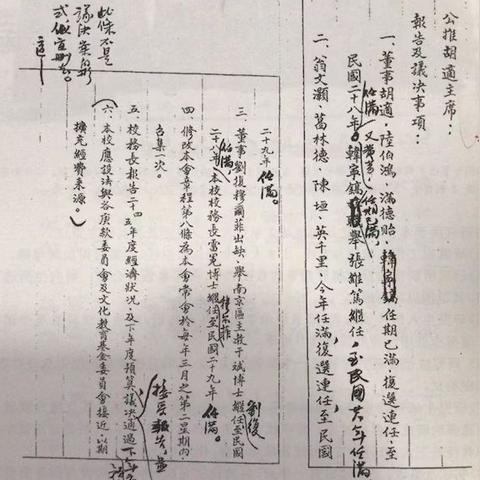 公推胡適主席：
報告及議決事項：
一、董事胡適，陸伯鴻，滿德貽，韓寧鎬任期已滿，復選連任，至
任滿
又
任期已滿，
民國二十八年。韓寧鎬辭職，舉張維篤繼任，至民國廿八年任滿
二、翁文灝，葛林德，陳垣，英千里，今年任滿，復選連任，至民國
二十九年任滿。
劉復
三、董事劉復穆爾菲出缺，舉南京區主教于斌博士繼任至民國
任滿
穆爾菲
二十八年，本校校務長雷冕博士繼任至民國二十九年任滿。
四、修改本會章程第八條為本會常會於每年三月之第二星期內，
召集一次。
四
五、校務長報告二十五年度經濟狀況，及下年度預算議決通過
接受報告，並
（六、本校應設法與各庚款委員會及文化教育基金委員會接近，以期
擴充經費來源。）
此條不是
議決案的形
式，似宜刪去。
適